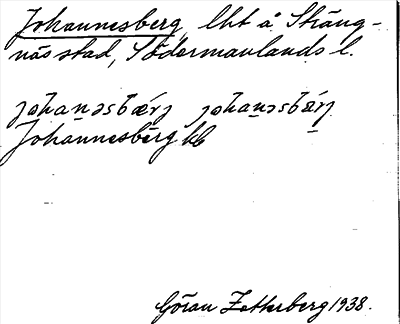 Johannesberg, lht å Sträng-
näs stad, Södermanlands l.
johanəsbærj johanəsbærj
Johannesberg kb
Göran Zetterberg 1938.